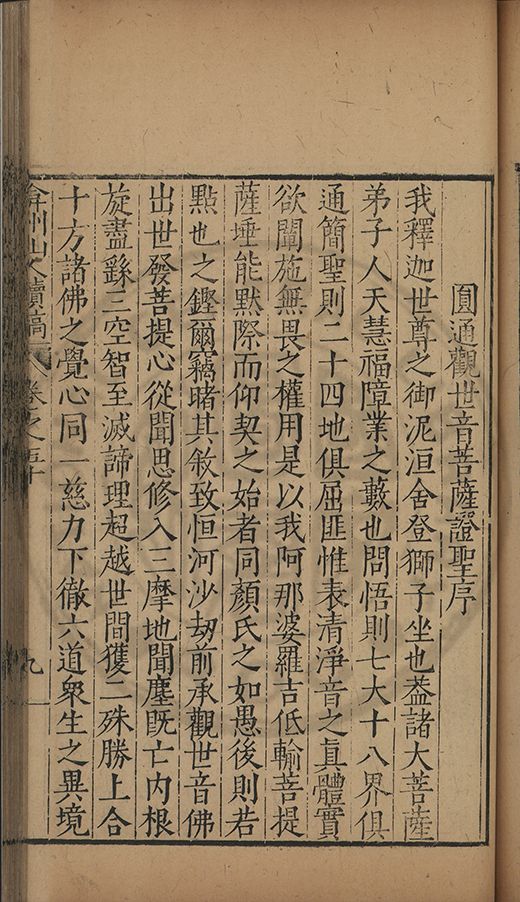 圓通觀世音菩薩證聖序
我釋迦世尊之御泥洹舍登獅子坐也葢諸大菩薩
弟子人天慧福障業之藪也問悟則七大十八界俱
通簡聖則二十四地俱屈匪惟表清淨音之眞體實
欲闡施無畏之權用是以我阿那婆羅吉低輸菩提
薩埵能默際而仰契之始者同顏氏之如愚後則若
點也之鏗爾竊睹其敘致恒河沙劫前承觀世音佛
出世發菩提心從聞思修入三摩地聞塵旣亡內根
旋盡繇三空智至滅諦理超越世間獲二殊勝上合
十方諸佛之覺心同一慈力下徹六道衆生之異境
弇州山人續稿 卷之五十 九